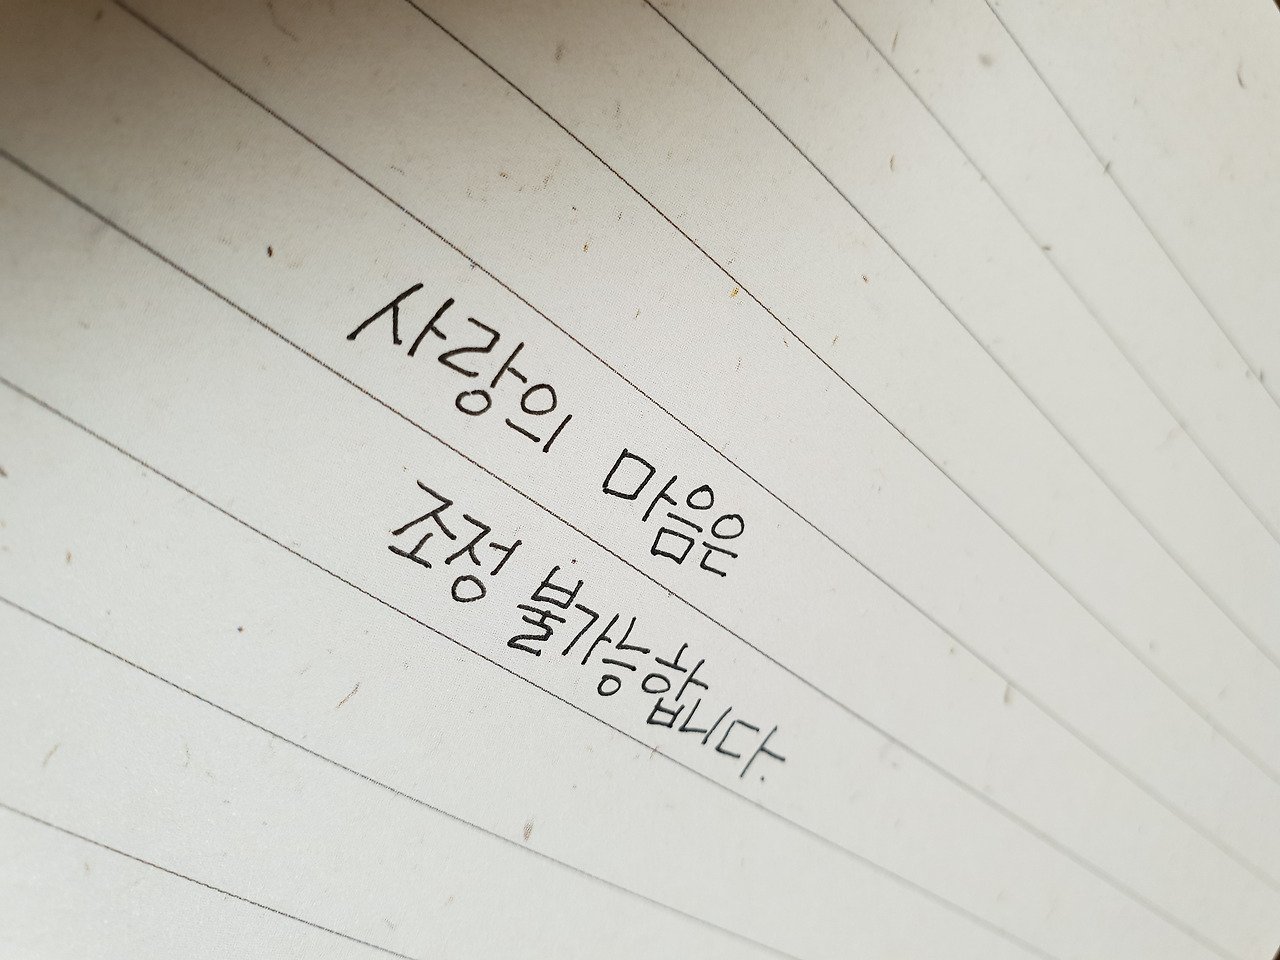 사랑의 마음은
조정 불가능합니다.